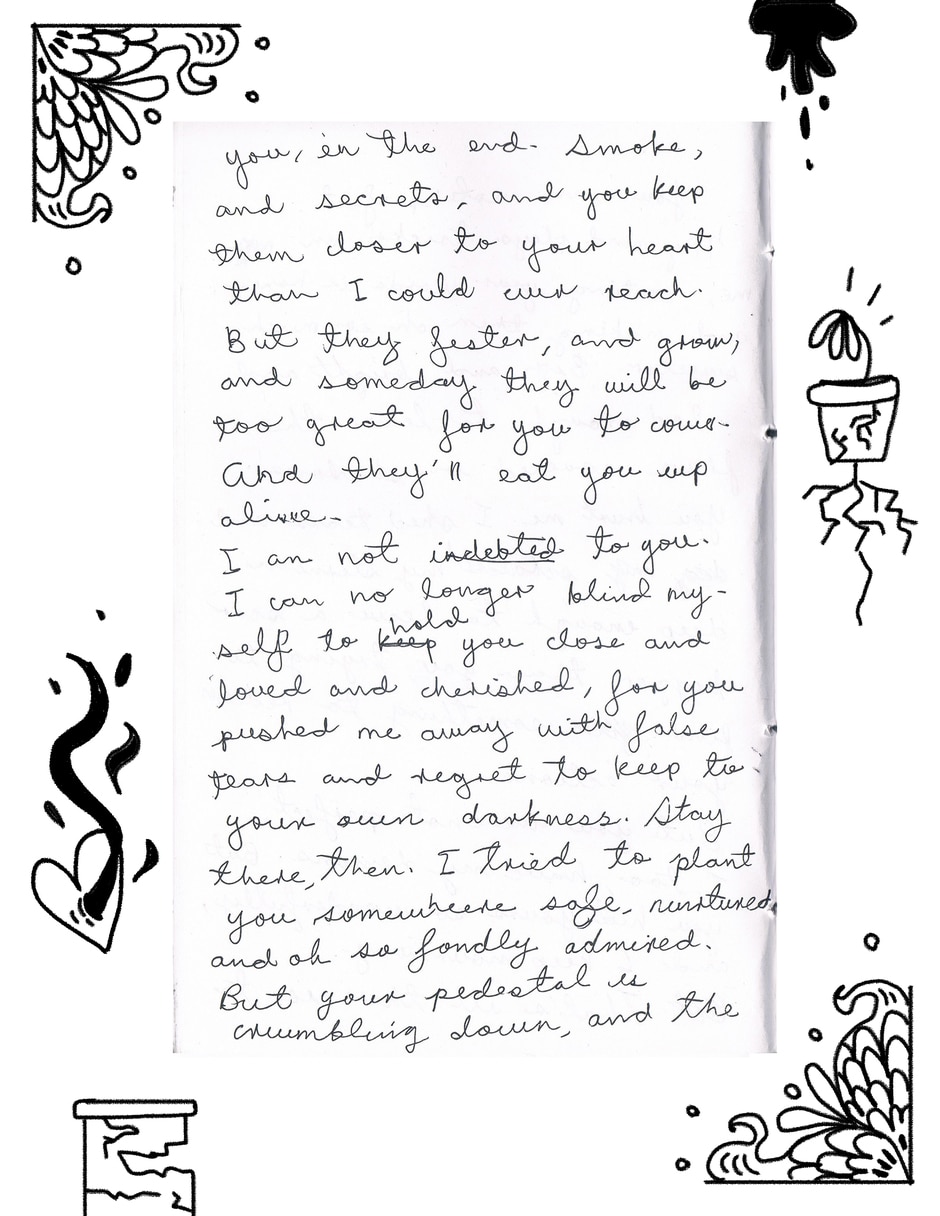 you, in the end. Smoke,
and secrets, and you keep
them closer to your heart
than I could ever reach.
But they fester, and grow,
and someday they will be
too great for you to
And they'll eat you up
alive.
I am not indebted to you.
I can no longer blind my-
self to keep hold you close and
loved and cherished, for you
pushed me away with false
tears and regret to keep to
your own darkness. Stay
there, then. I tried to plant
you somewhere safe, nurtured,
and oh so fondly admired.
But your pedestal is
crumbling down, and the